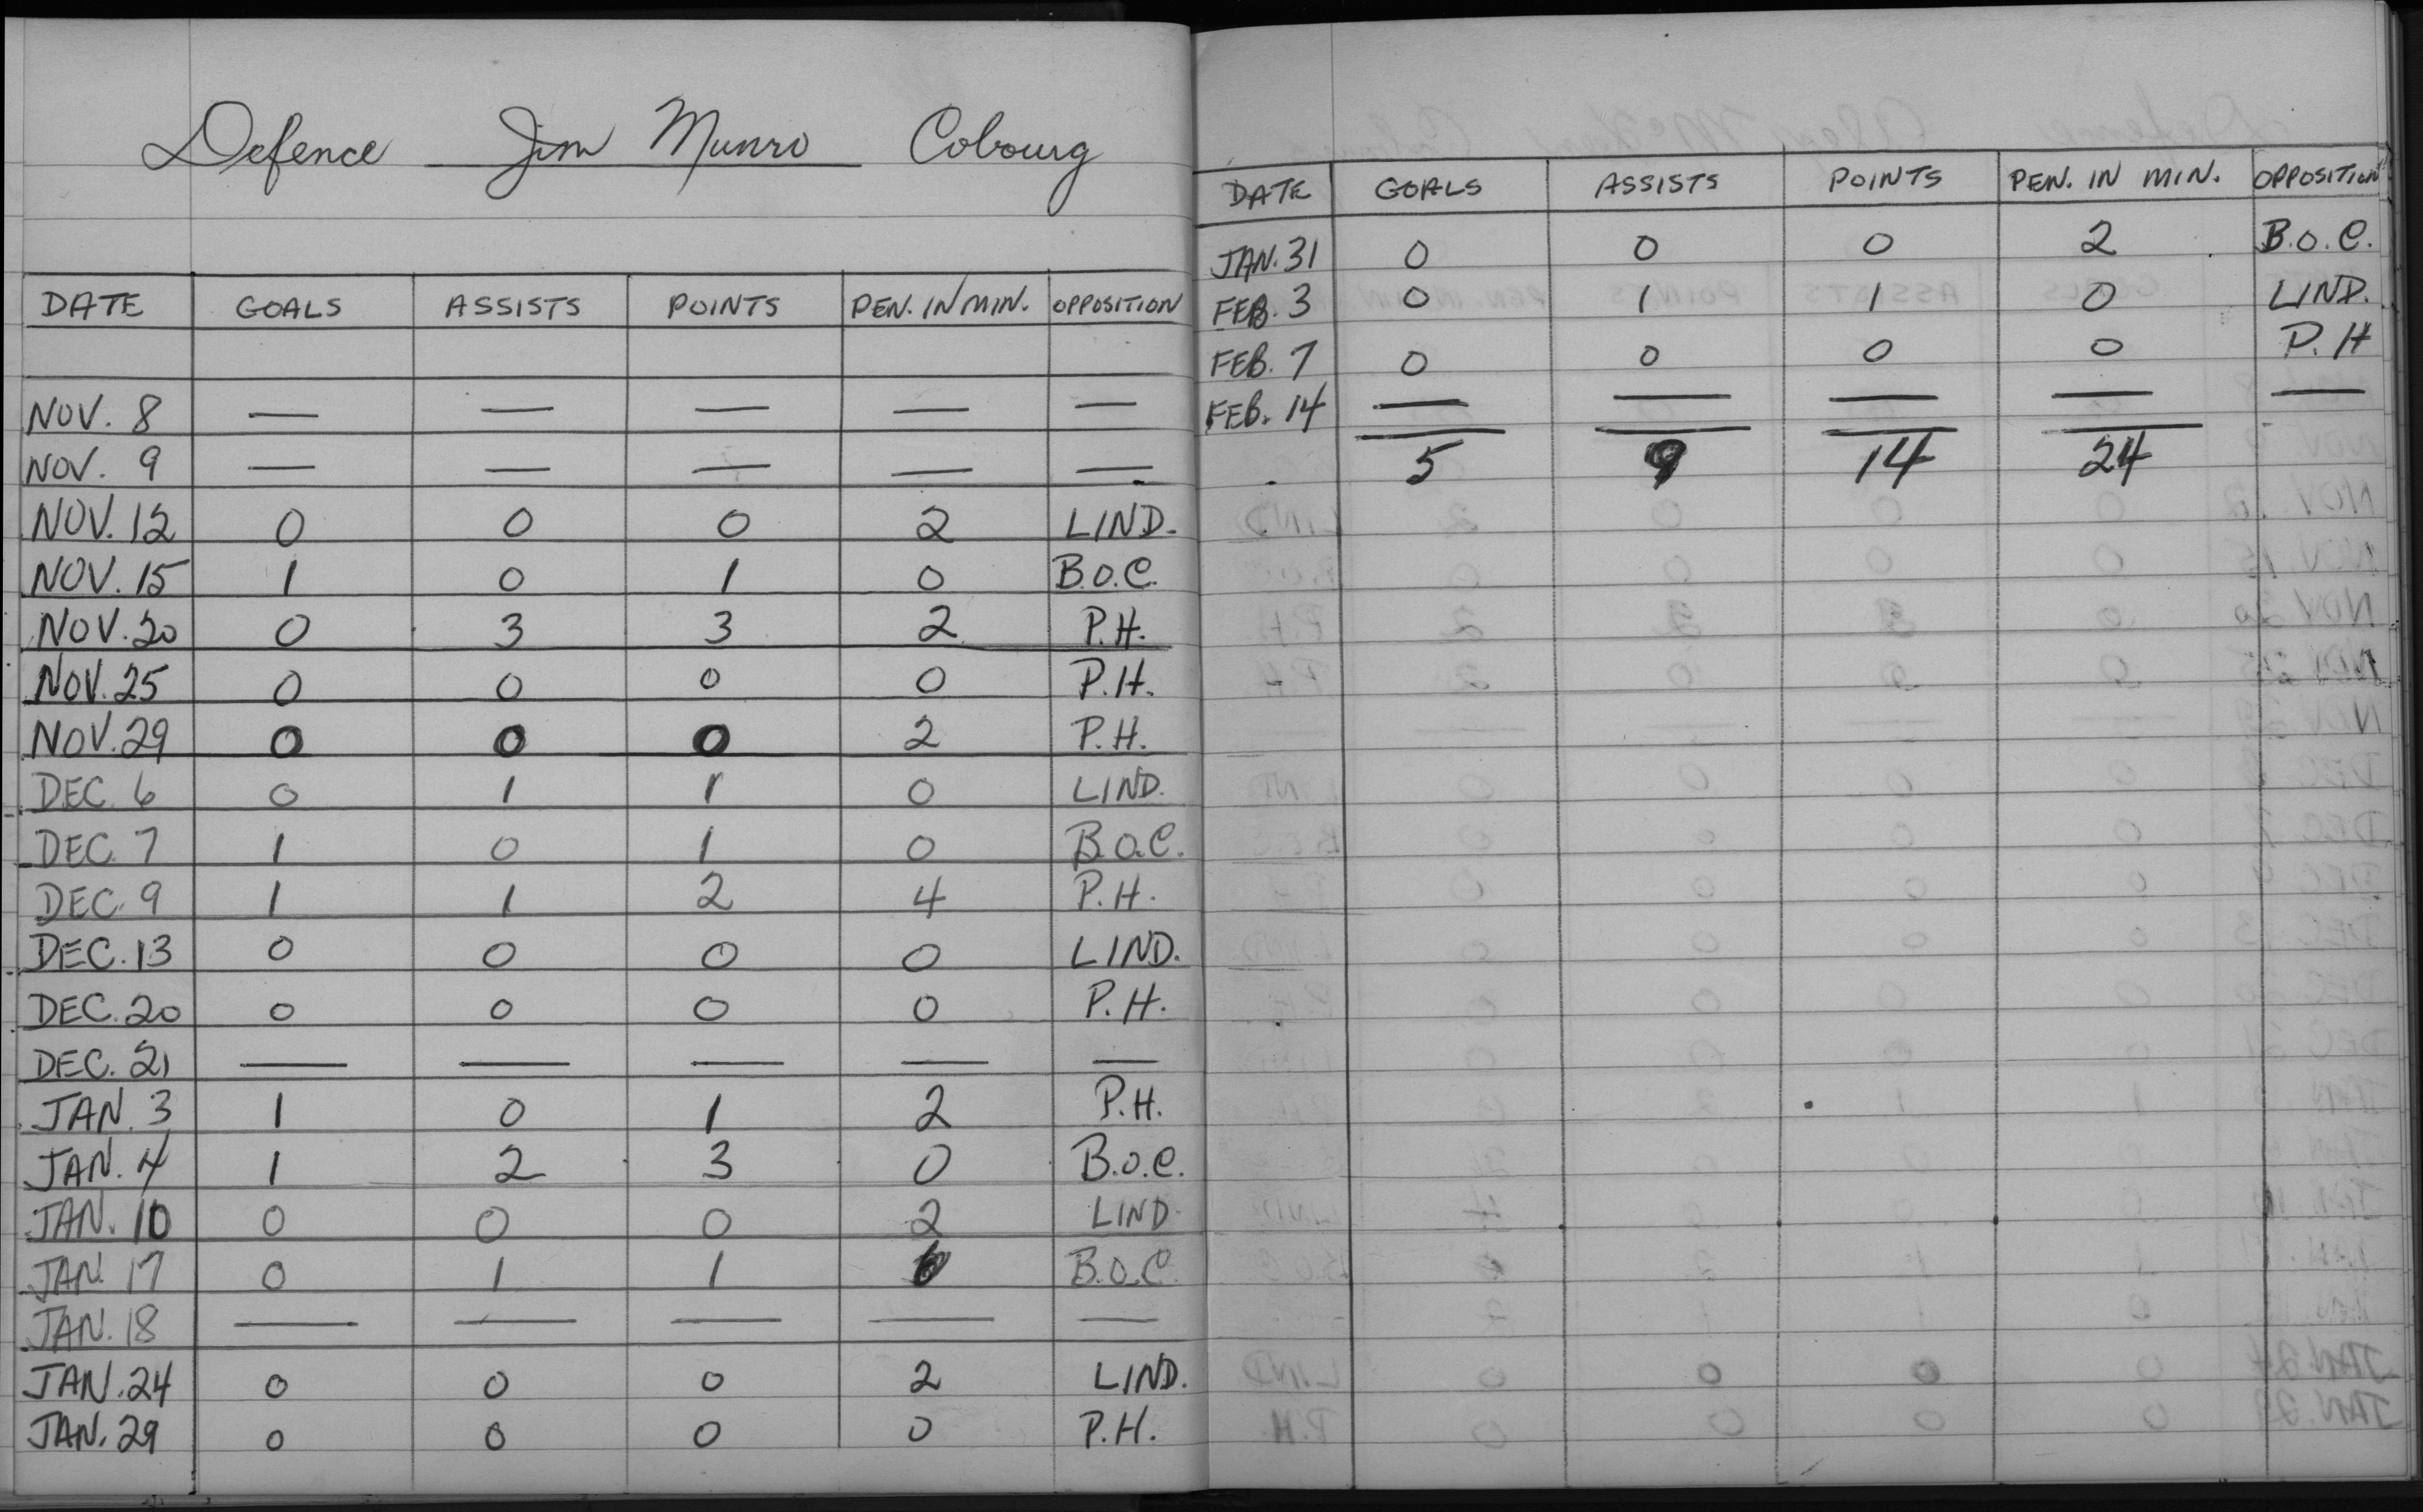 Defence Jim Munro Cobourg
DATE GOALS ASSISTS POINTS PEN. IN MIN. OPPOSITION
NOV. 8 — — — — —
NOV. 9 — — — — —
NOV. 12 0 0 0 2 LIND.
NOV. 15 1 0 1 0 B.O.C.
NOV. 20 0 3 3 2 P.H.
NOV. 25 0 0 0 0 P.H.
NOV. 29 0 0 0 2 P.H.
DEC. 6 0 1 1 0 LIND.
DEC. 7 1 0 1 0 B.O.C.
DEC. 9 1 1 2 4 P.H.
DEC. 13 0 0 0 0 LIND.
DEC. 20 0 0 0 0 P.H.
DEC. 21 — — — — —
JAN. 3 1 0 1 2 P.H.
JAN. 4 1 2 3 0 B.O.C.
JAN. 10 0 0 0 2 LIND.
JAN. 17 0 1 1 6 B.O.C.
JAN. 18 — — — — —
JAN. 24 0 0 0 2 LIND.
JAN. 29 0 0 0 0 P.H.
DATE GOALS ASSISTS POINTS PEN. IN MIN. OPPOSITION
JAN. 31 0 0 0 2 B.O.C.
FEB. 3 0 1 1 0 LIND.
FEB. 7 0 0 0 0 P.H
FEB. 14 — — — — —
5 9 14 24